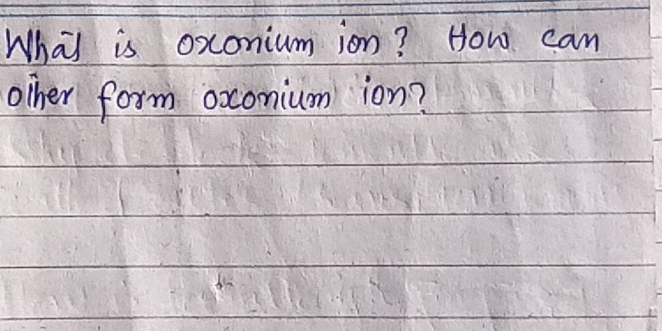 What is oxonium ion? How can
other form oxonium ion?